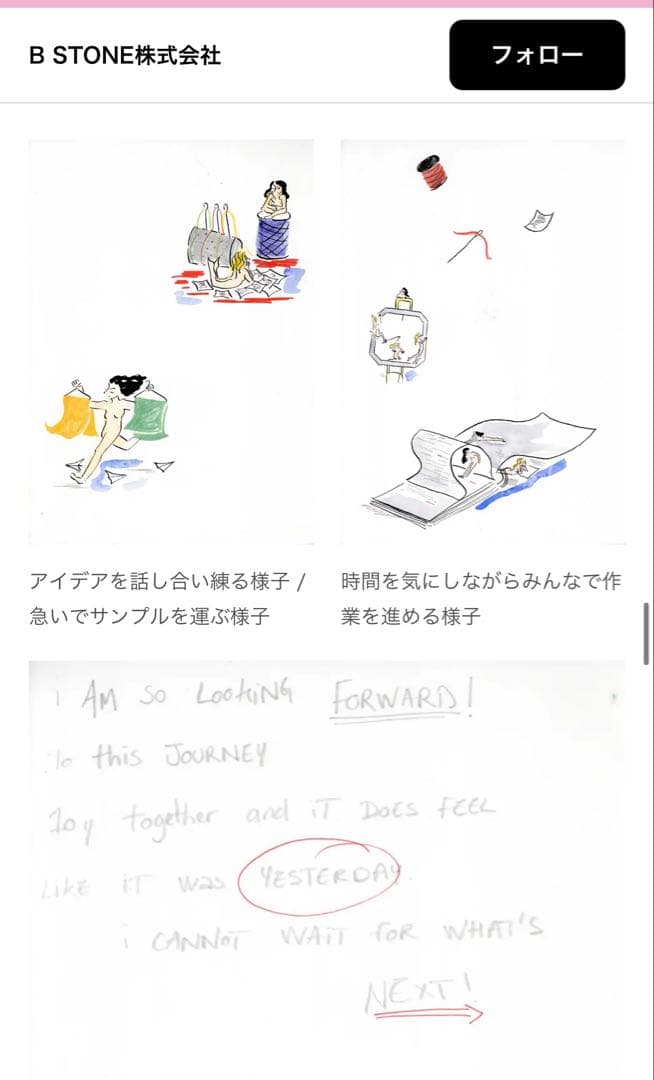 B STONE株式会社
フォロー
アイデアを話し合い練る様子 /
急いでサンプルを運ぶ様子
時間を気にしながらみんなで作
業を進める様子
i AM SO LOOKiNG FORWARD!
To this JOURNEY
10y together and iT DOES FEEL
LiKE iT was YESTERDAY.
i CANNOT WAiT FOR WHAT'S
NEXT!